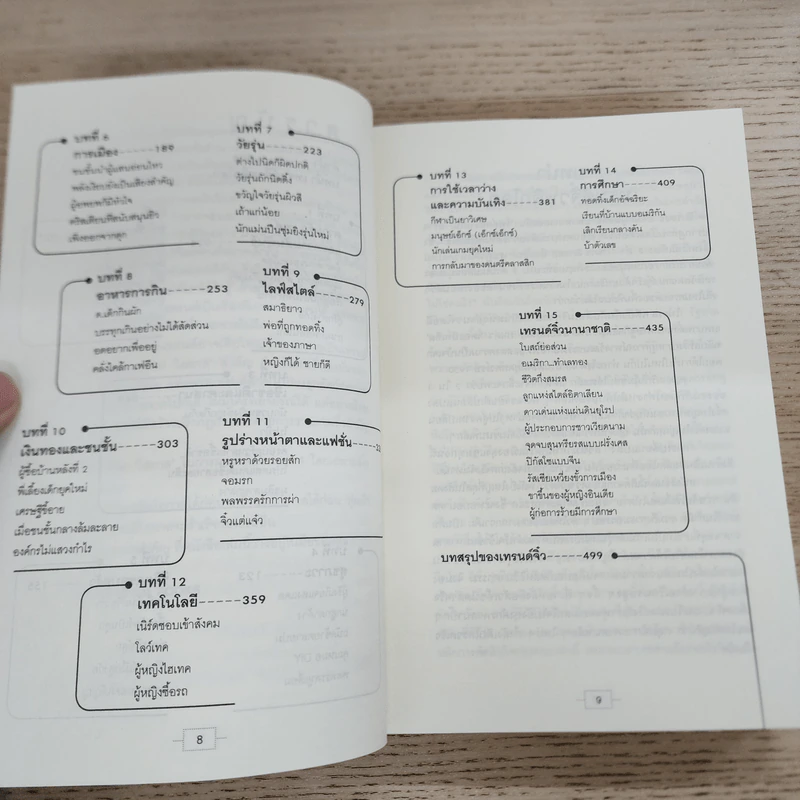 บทที่ 6
การเมือง-----189
ชนชั้นนำผู้แสนอ่อนไหว
พลังเงียบอันเป็นเสียงสำคัญ
ผู้อพยพก็มีหัวใจ
คริสเตียนที่สนับสนุนยิว
เพิ่งออกจากคุก
บทที่ 7
วัยรุ่น-----223
ต่างไปนิดก็ผิดปกติ
วัยรุ่นถักนิตติ้ง
ขวัญใจวัยรุ่นผิวสี
เถ้าแก่น้อย
นักแม่นปืนซุ่มยิงรุ่นใหม่
บทที่ 8
อาหารการกิน-----253
ด.เด็กกินผัก
บรรทุกเกินอย่างไม่ได้สัดส่วน
อดอยากเพื่ออยู่
คลั่งไคล้กาเฟอีน
บทที่ 9
ไลฟ์สไตล์-----279
สมาธิยาว
พ่อที่ถูกทอดทิ้ง
เจ้าของภาษา
หญิงก็ได้ ชายก็ดี
บทที่ 10
เงินทองและชนชั้น-----303
ผู้ซื้อบ้านหลังที่ 2
พี่เลี้ยงเด็กยุคใหม่
เศรษฐีขี้อาย
เมื่อชนชั้นกลางล้มละลาย
องค์กรไม่แสวงกำไร
บทที่ 11
รูปร่างหน้าตาและแฟชั่น-----
หรูหราด้วยรอยสัก
จอมรก
พลพรรครักการผ่า
จิ๋วแต่แจ๋ว
บทที่ 12
เทคโนโลยี-----359
เนิร์ดชอบเข้าสังคม
โลว์เทค
ผู้หญิงไฮเทค
ผู้หญิงซื้อรถ
8
บทที่ 13
การใช้เวลาว่าง
และความบันเทิง-----381
กีฬาเป็นยาวิเศษ
มนุษย์เอ็กซ์ (เอ็กซ์เอ็กซ์)
นักเล่นเกมยุคใหม่
การกลับมาของดนตรีคลาสสิก
บทที่ 14
การศึกษา-----409
ทอดทิ้งเด็กอัจฉริยะ
เรียนที่บ้านแบบอเมริกัน
เลิกเรียนกลางคัน
บ้าตัวเลข
บทที่ 15
เทรนด์จิ๋วนานาชาติ-----435
โบสถ์ย่อส่วน
อเมริกา...ทำเลทอง
ชีวิตกึ่งสมรส
ลูกแหง่สไตล์อิตาเลียน
ดาวเด่นแห่งแผ่นดินยุโรป
ผู้ประกอบการชาวเวียดนาม
จุดจบสุนทรียรสแบบฝรั่งเศส
ปิกัสโซแบบจีน
รัสเซียเหวี่ยงขั้วการเมือง
ขาขึ้นของผู้หญิงอินเดีย
ผู้ก่อการร้ายมีการศึกษา
บทสรุปของเทรนด์จิ๋ว-----499
9